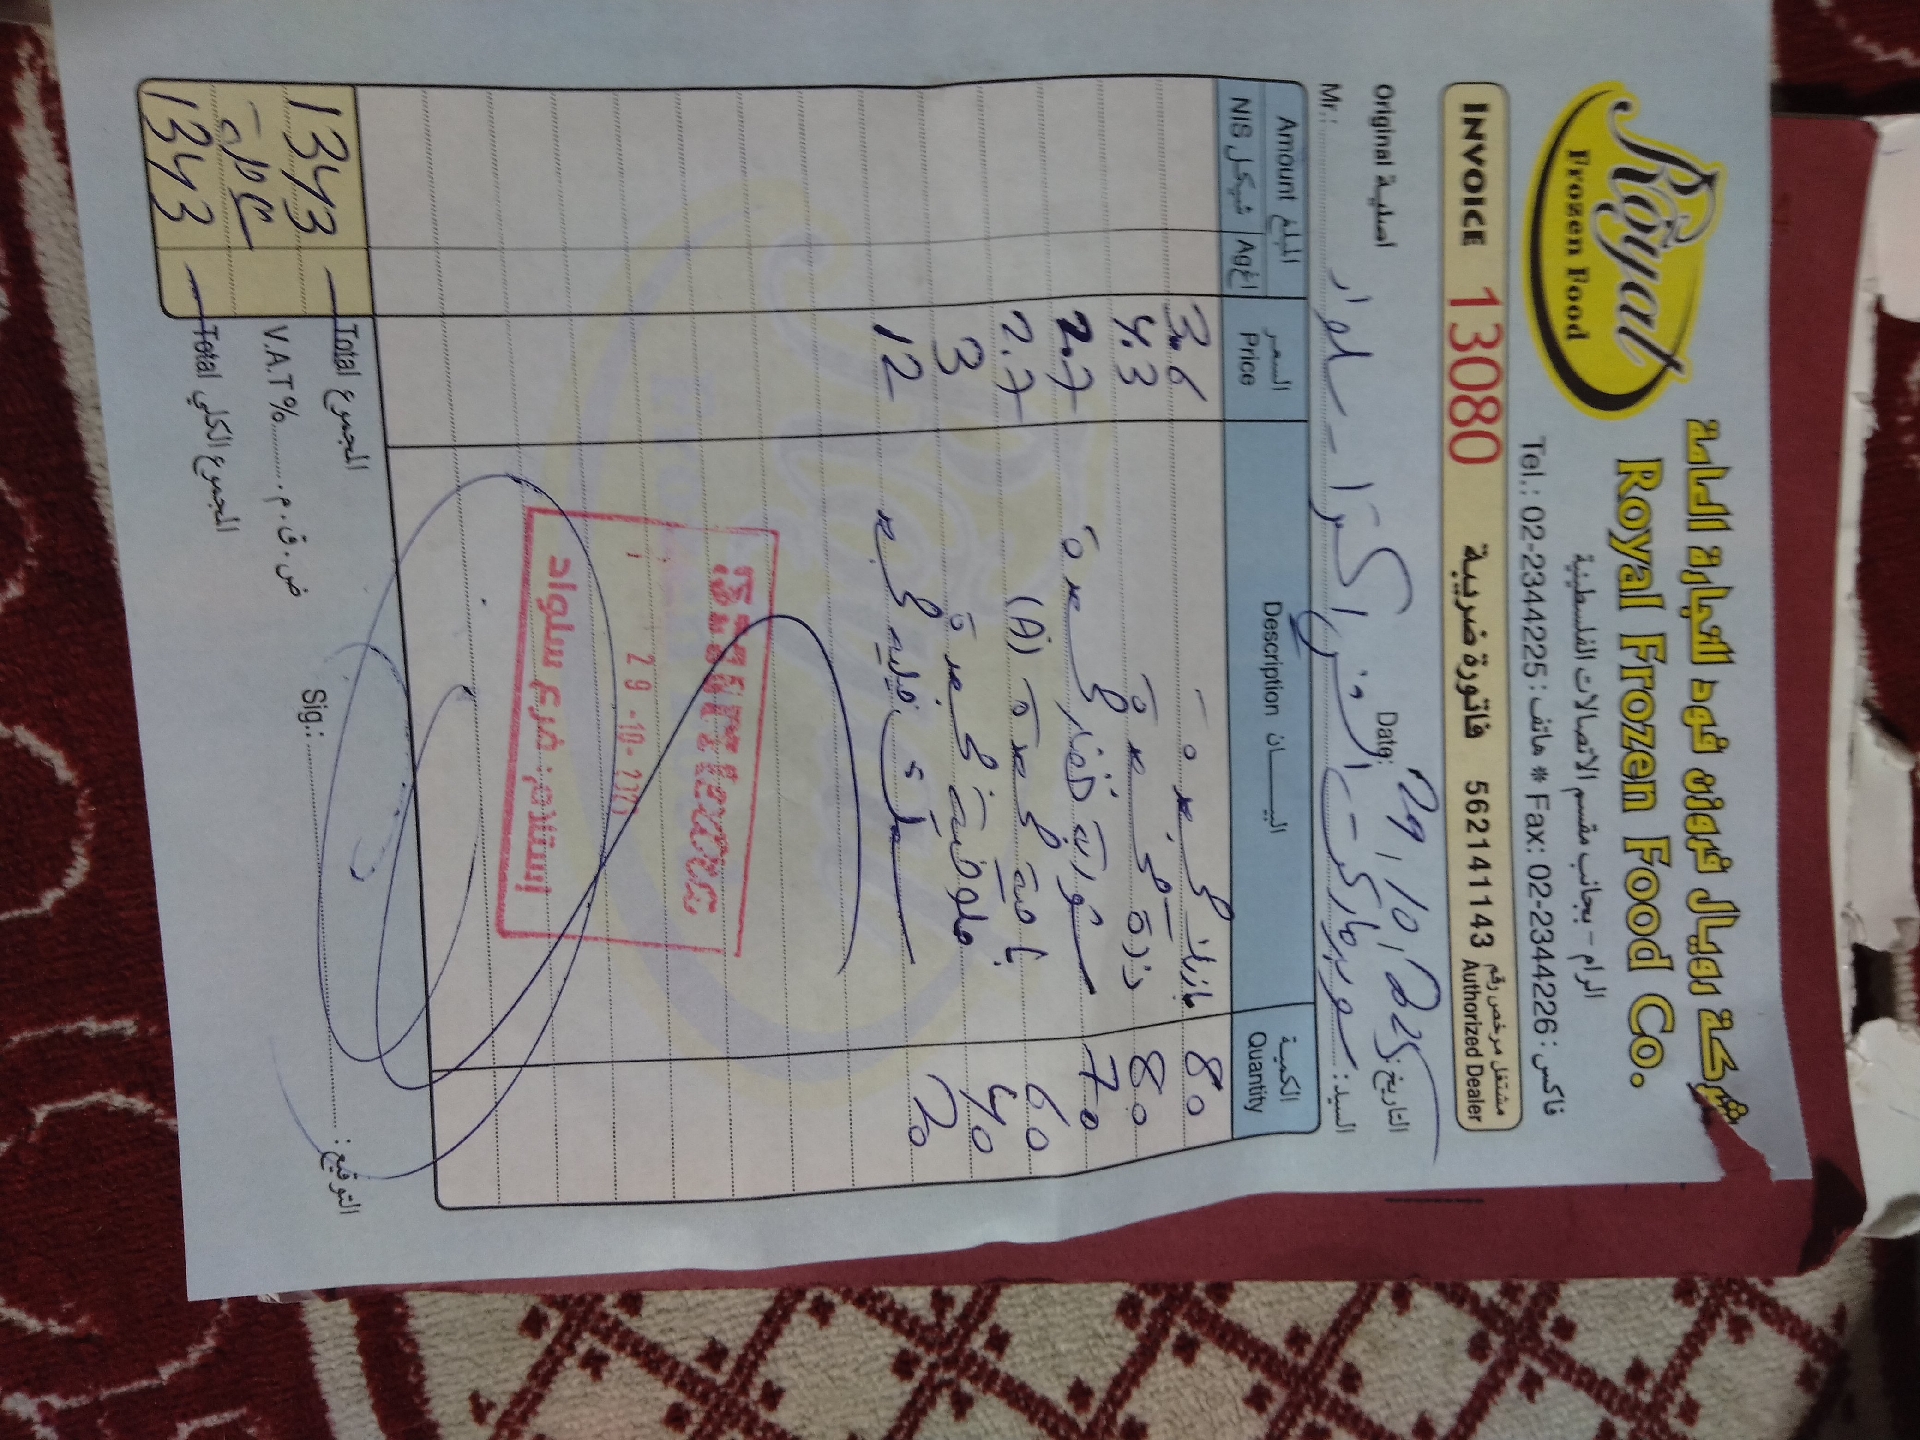 شركة رويال فروزن فود للتجارة العامة
Royal Frozen Food Co.
الرام - بجانب مقسم الاتصالات الفلسطينية
Tel.: 02-2344225 : هاتف * Fax: 02-2344226 : فاكس
Royal
Frozen Food
INVOICE 13080 فاتورة ضريبية 562141143 مشتغل مرخص رقم Authorized Dealer
Original أصلية
Date: 29/10/2025 التاريخ:
Mr.: السيد: سوبرماركت سلواد
المبلغ Amount السعر Price البيـــان Description الكمية Quantity
شيكل NIS اغ Ag
3.6 بازيلا مجمدة 80
4.3 ذرة مجمدة 80
2.7 70
2.7 بامية مجمدة (A) 60
3 ملوخية مجمدة 40
12 20
29-10-2025
إستلام: فرع سلواد
1343 Total المجموع
V.A.T% ض.ق.م.
1343 Total المجموع الكلي
Sig.: التوقيع: